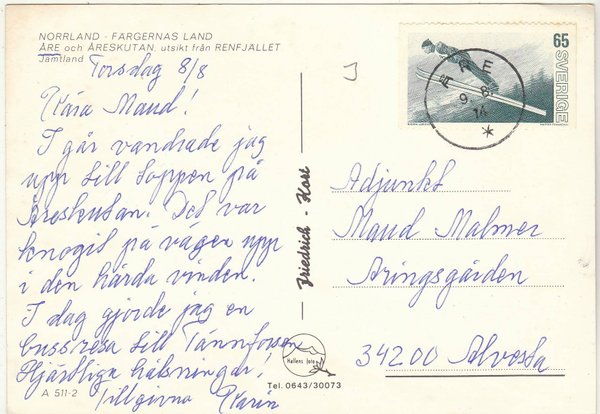 NORRLAND - FÄRGERNAS LAND
ÅRE och ÅRESKUTAN, utsikt från RENFJÄLLET
Jämtland
Torsdag 8/8
Kära Maud!
I går vandrade jag
upp till toppen på
Åreskutan. Det var
knogit på vägen upp
i den hårda vinden.
I dag gjorde jag en
bussresa till Tännforsen
Hjärtliga hälsningar!
Tillgivna Karin
A 511-2
Friedrich - Kort
Hallens foto
Tel. 0643/30073
65
SVERIGE
ÅRE
9 8
14
Adjunkt
Maud Malmer
Aringsgården
34200 Alvesta